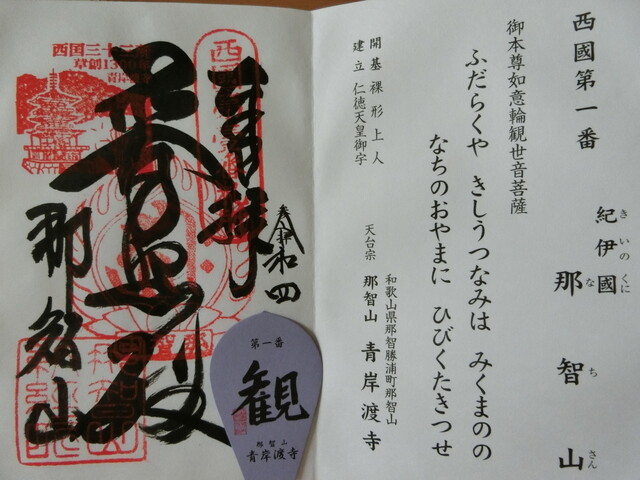 西國第一番
紀伊國
きいのくに
那智山
なちさん
御本尊如意輪観世音菩薩
ふだらくや きしうつなみは みくまのの
なちのおやまに ひびくたきつせ
開基 裸形上人
建立 仁徳天皇御宇
和歌山県那智勝浦町那智山
天台宗 那智山 青岸渡寺
西国三十三所
草創1300年
奉拝
令和四
普照殿
那智山
第一番
観
那智山
青岸渡寺